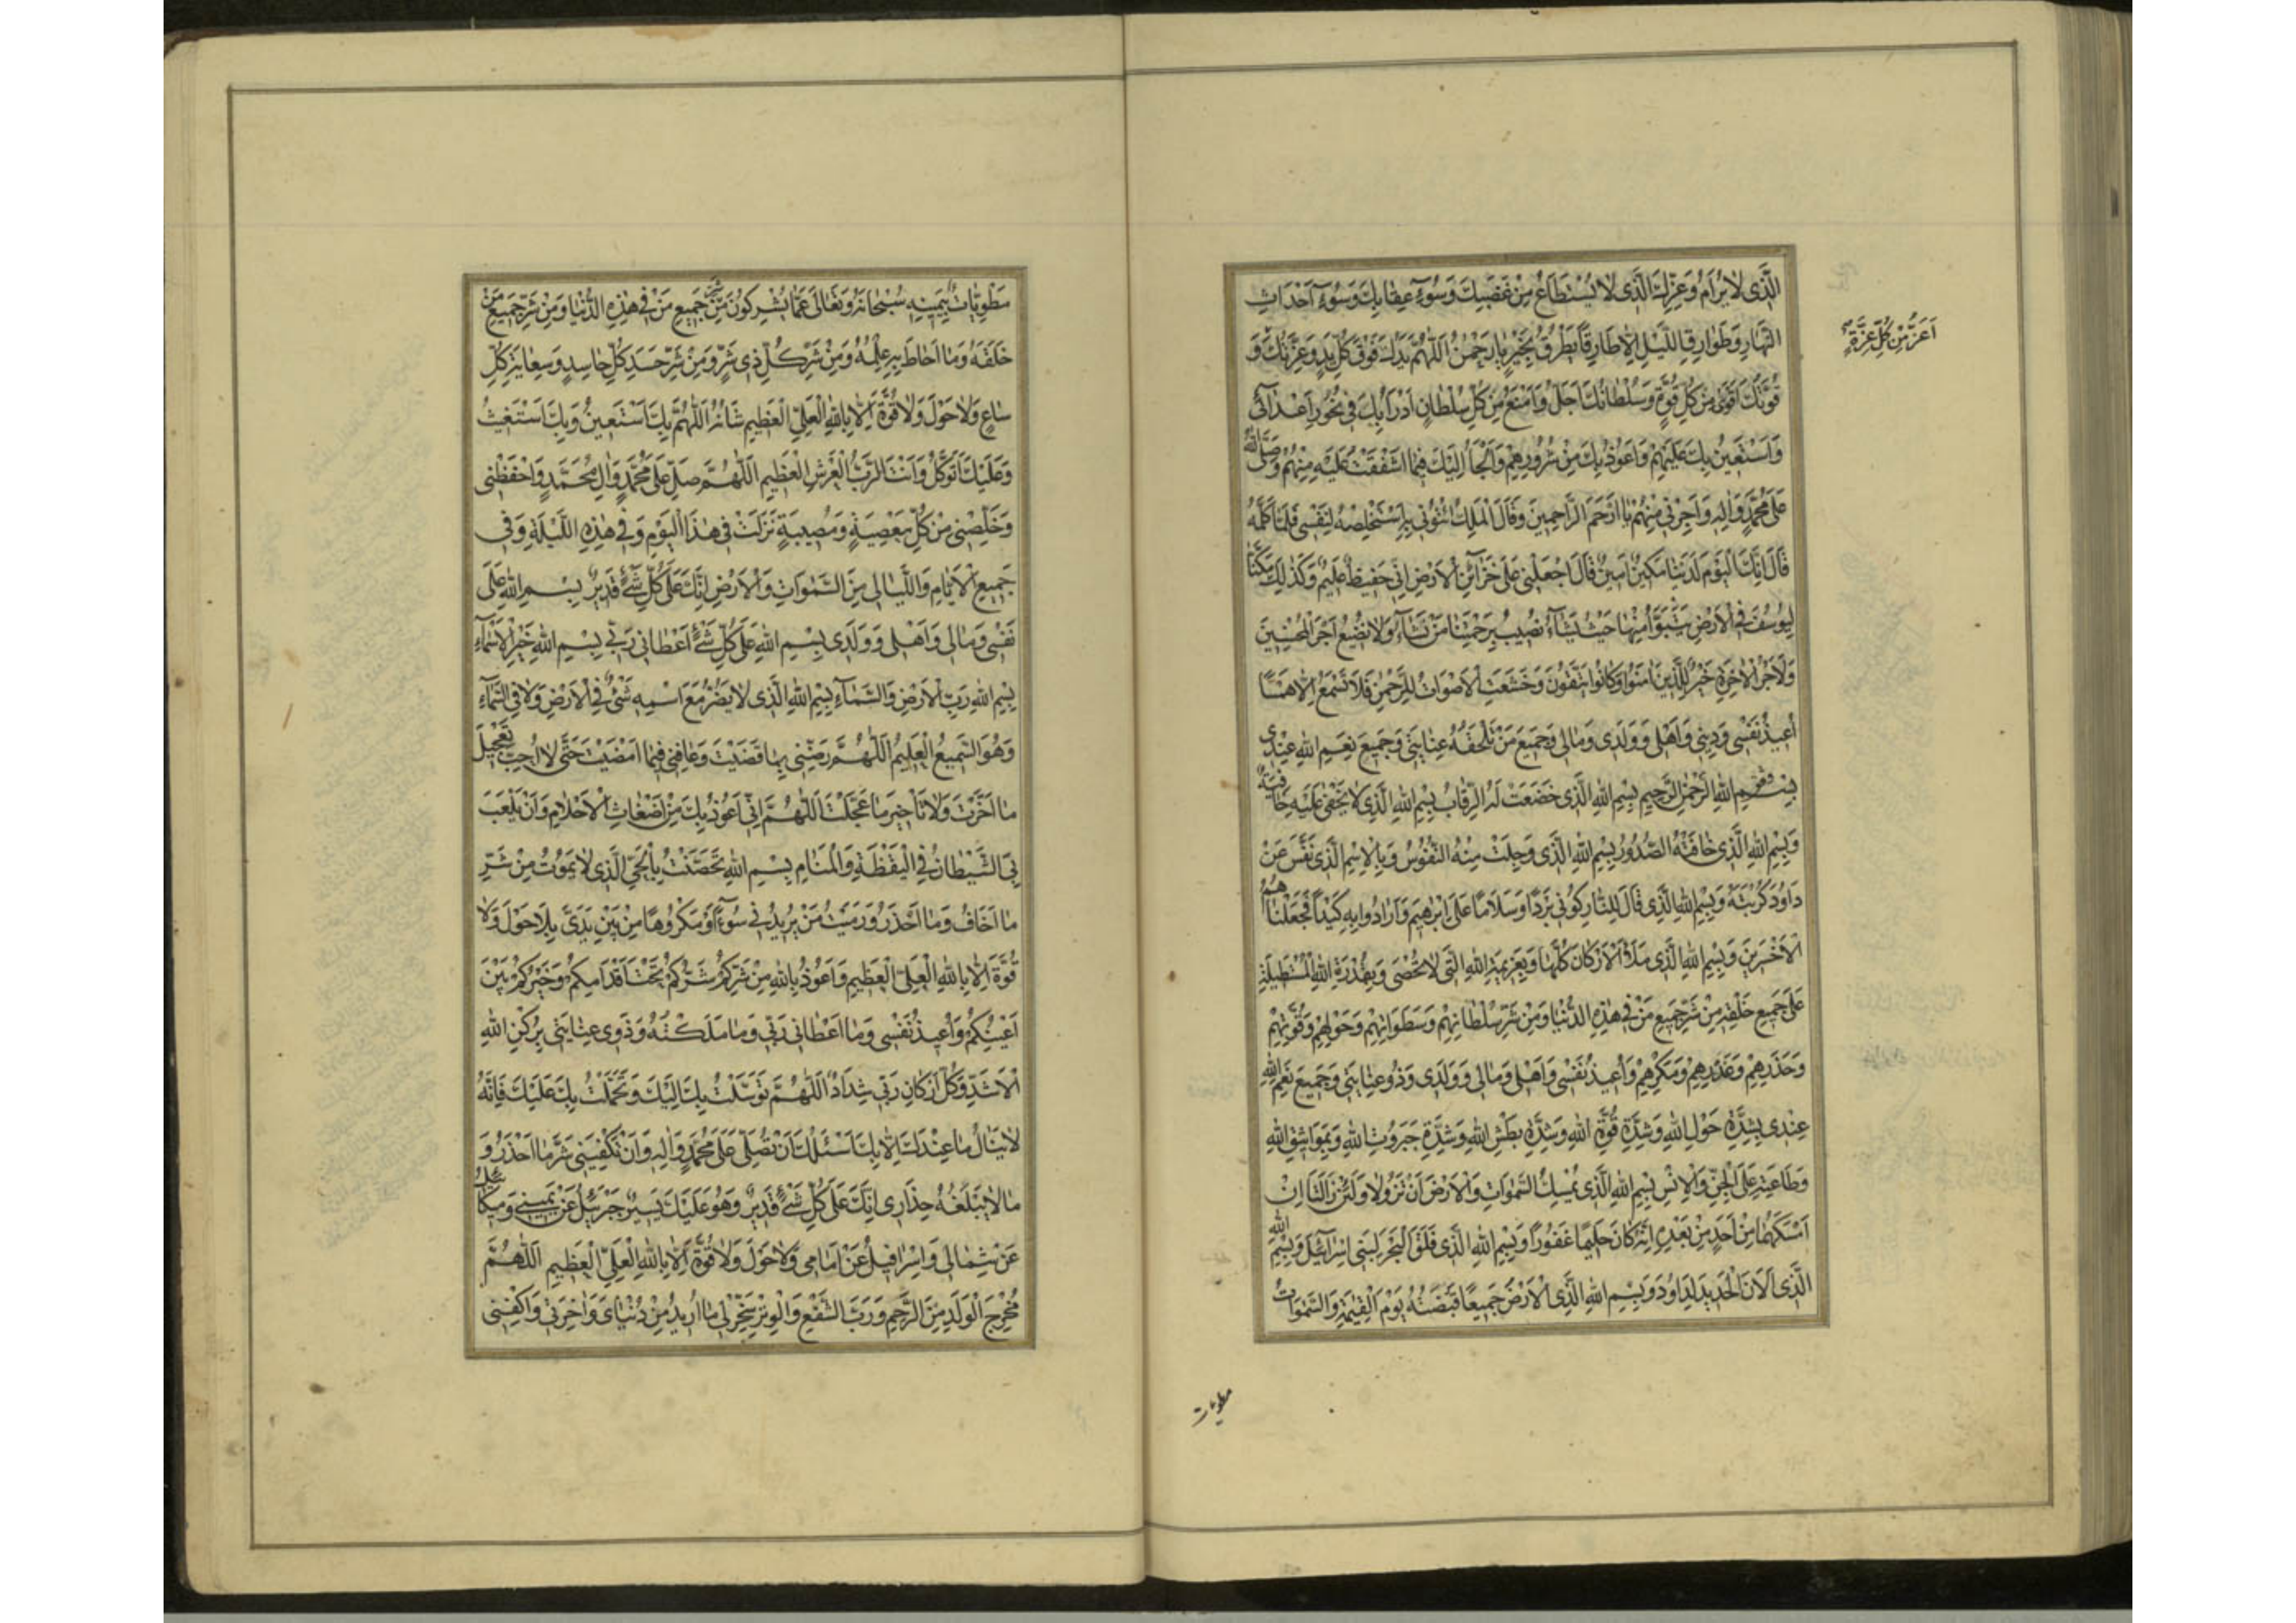 الَّذى لا يُرامُ وَعِزِّكَ الَّذى لا يُسْتَطاعُ مِنْ غَضَبِكَ وَسُوءِ عِقابِكَ وَسُوءِ اَحْداثِ
النَّهارِ وَطَوارِقِ اللَّيْلِ اِلّا طارِقًا يَطْرُقُ بِخَيْرٍ يا رَحْمٰنُ اَللّٰهُمَّ يَدُكَ فَوْقَ كُلِّ يَدٍ وَعِزَّتُكَ وَ
اَعَزُّ مِنْ كُلِّ عِزَّةٍ
قُوَّتُكَ اَقْوىٰ مِنْ كُلِّ قُوَّةٍ وَسُلْطانُكَ اَجَلُّ وَاَمْنَعُ مِنْ كُلِّ سُلْطانٍ اَدْرَأُ بِكَ فى نُحُورِ اَعْدائى
وَاَسْتَعينُ بِكَ عَلَيْهِمْ وَاَعُوذُ بِكَ مِنْ شُرُورِهِمْ وَاَلْجَأُ اِلَيْكَ فيما اَشْفَقْتُ عَلَيْهِ مِنْهُمْ وَصَلَّى اللهُ
عَلىٰ مُحَمَّدٍ وَاٰلِهِ وَاَجِرْنى مِنْهُمْ يا اَرْحَمَ الرّاحِمينَ وَقالَ الْمَلِكُ ائْتُونى بِهِ اَسْتَخْلِصْهُ لِنَفْسى فَلَمّا كَلَّمَهُ
قالَ اِنَّكَ الْيَوْمَ لَدَيْنا مَكينٌ اَمينٌ قالَ اجْعَلْنى عَلىٰ خَزائِنِ الْاَرْضِ اِنّى حَفيظٌ عَليمٌ وَكَذٰلِكَ مَكَّنّا
لِيُوسُفَ فِى الْاَرْضِ يَتَبَوَّأُ مِنْها حَيْثُ يَشاءُ نُصيبُ بِرَحْمَتِنا مَنْ نَشاءُ وَلا نُضيعُ اَجْرَ الْمُحْسِنينَ
وَلَاَجْرُ الْاٰخِرَةِ خَيْرٌ لِلَّذينَ اٰمَنُوا وَكانُوا يَتَّقُونَ وَخَشَعَتِ الْاَصْواتُ لِلرَّحْمٰنِ فَلا تَسْمَعُ اِلّا هَمْسًا
اُعيذُ نَفْسى وَدينى وَاَهْلى وَوَلَدى وَمالى وَجَميعَ مَنْ تَلْحَقُهُ عِنايَتى وَجَميعَ نِعَمِ اللهِ عِنْدى
بِسْمِ اللهِ الرَّحْمٰنِ الرَّحيمِ بِسْمِ اللهِ الَّذى خَضَعَتْ لَهُ الرِّقابُ بِسْمِ اللهِ الَّذى لا يَخْفىٰ عَلَيْهِ خافِيَةٌ
وَبِسْمِ اللهِ الَّذى خافَتْهُ الصُّدُورُ بِسْمِ اللهِ الَّذى وَجِلَتْ مِنْهُ النُّفُوسُ وَبِالْاِسْمِ الَّذى نَفَّسَ عَنْ
داوُدَ كُرْبَتَهُ وَبِسْمِ اللهِ الَّذى قالَ لِلنّارِ كُونى بَرْدًا وَسَلامًا عَلىٰ اِبْرٰهيمَ وَاَرادُوا بِهِ كَيْدًا فَجَعَلْناهُمُ
الْاَخْسَرينَ وَبِسْمِ اللهِ الَّذى مَلَأَ الْاَرْكانَ كُلَّها وَبِعَزيمَةِ اللهِ الَّتى لا تُحْصىٰ وَبِقُدْرَةِ اللهِ الْمُسْتَطيلَةِ
عَلىٰ جَميعِ خَلْقِهِ مِنْ شَرِّ جَميعِ مَنْ فى هٰذِهِ الدُّنْيا وَمِنْ شَرِّ سُلْطانِهِمْ وَسَطَواتِهِمْ وَحَوْلِهِمْ وَقُوَّتِهِمْ
وَحَذَرِهِمْ وَغَدْرِهِمْ وَمَكْرِهِمْ وَاُعيذُ نَفْسى وَاَهْلى وَمالى وَوَلَدى وَذَوُو عِنايَتى وَجَميعَ نِعَمِ اللهِ
عِنْدى بِشِدَّةِ حَوْلِ اللهِ وَشِدَّةِ قُوَّةِ اللهِ وَشِدَّةِ بَطْشِ اللهِ وَشِدَّةِ جَبَرُوتِ اللهِ وَبِمَواثيقِ اللهِ
وَطاعَتِهِ عَلَى الْجِنِّ وَالْاِنْسِ بِسْمِ اللهِ الَّذى يُمْسِكُ السَّمٰواتِ وَالْاَرْضَ اَنْ تَزُولا وَلَئِنْ زالَتا اِنْ
اَمْسَكَهُما مِنْ اَحَدٍ مِنْ بَعْدِهِ اِنَّهُ كانَ حَليمًا غَفُورًا وَبِسْمِ اللهِ الَّذى فَلَقَ الْبَحْرَ لِبَنى اِسْرائيلَ وَبِسْمِ اللهِ
الَّذى اَلانَ الْحَديدَ لِداوُدَ وَبِسْمِ اللهِ الَّذى الْاَرْضُ جَميعًا قَبْضَتُهُ يَوْمَ الْقِيٰمَةِ وَالسَّمٰواتُ
مطويات
مَطْوِيّاتٌ بِيَمينِهِ سُبْحانَهُ وَتَعالىٰ عَمّا يُشْرِكُونَ مِنْ شَرِّ جَميعِ مَنْ فى هٰذِهِ الدُّنْيا وَمِنْ شَرِّ جَميعِ مَنْ
خَلَقَهُ وَما اَحاطَ بِهِ عِلْمُهُ وَمِنْ شَرِّ كُلِّ ذى شَرٍّ وَمِنْ شَرِّ حَسَدِ كُلِّ حاسِدٍ وَسِعايَةِ كُلِّ
ساعٍ وَلا حَوْلَ وَلا قُوَّةَ اِلّا بِاللهِ الْعَلِىِّ الْعَظيمِ شَأْنُهُ اَللّٰهُمَّ بِكَ اَسْتَعينُ وَبِكَ اَسْتَغيثُ
وَعَلَيْكَ اَتَوَكَّلُ وَاَنْتَ الرَّبُّ الْعَرْشِ الْعَظيمِ اَللّٰهُمَّ صَلِّ عَلىٰ مُحَمَّدٍ وَاٰلِ مُحَمَّدٍ وَاحْفَظْنى
وَخَلِّصْنى مِنْ كُلِّ مَعْصِيَةٍ وَمُصيبَةٍ نَزَلَتْ فى هٰذَا الْيَوْمِ وَفى هٰذِهِ اللَّيْلَةِ وَفى
جَميعِ الْاَيّامِ وَاللَّيالى مِنَ السَّمٰواتِ وَالْاَرْضِ اِنَّكَ عَلىٰ كُلِّ شَىْءٍ قَديرٌ بِسْمِ اللهِ عَلىٰ
نَفْسى وَمالى وَاَهْلى وَوَلَدى بِسْمِ اللهِ عَلىٰ كُلِّ شَىْءٍ اَعْطانى رَبّى بِسْمِ اللهِ خَيْرِ الْاَسْماءِ
بِسْمِ اللهِ رَبِّ الْاَرْضِ وَالسَّماءِ بِسْمِ اللهِ الَّذى لا يَضُرُّ مَعَ اسْمِهِ شَىْءٌ فِى الْاَرْضِ وَلا فِى السَّماءِ
وَهُوَ السَّميعُ الْعَليمُ اَللّٰهُمَّ رَضِّنى بِما قَضَيْتَ وَعافِنى فيما اَمْضَيْتَ حَتّىٰ لا اُحِبَّ تَعْجيلَ
ما اَخَّرْتَ وَلا تَأْخيرَ ما عَجَّلْتَ اَللّٰهُمَّ اِنّى اَعُوذُ بِكَ مِنْ اَضْغاثِ الْاَحْلامِ وَاَنْ يَلْعَبَ
بِىَ الشَّيْطانُ فِى الْيَقَظَةِ وَالْمَنامِ بِسْمِ اللهِ تَحَصَّنْتُ بِالْحَىِّ الَّذى لا يَمُوتُ مِنْ شَرِّ
ما اَخافُ وَما اَحْذَرُ وَرَمَيْتُ مَنْ يُريدُ بى سُوءًا اَوْ مَكْرُوهًا مِنْ بَيْنِ يَدَىَّ بِلا حَوْلَ وَلا
قُوَّةَ اِلّا بِاللهِ الْعَلِىِّ الْعَظيمِ وَاَعُوذُ بِاللهِ مِنْ شَرِّكُمْ شَرُّكُمْ تَحْتَ اَقْدامِكُمْ وَخَيْرُكُمْ بَيْنَ
اَعْيُنِكُمْ وَاُعيذُ نَفْسى وَما اَعْطانى رَبّى وَما مَلَكْتُهُ وَذَوى عِنايَتى بِرُكْنِ اللهِ
الْاَشَدِّ وَكُلُّ اَرْكانِ رَبّى شِدادٌ اَللّٰهُمَّ تَوَسَّلْتُ بِكَ اِلَيْكَ وَتَحَمَّلْتُ بِكَ عَلَيْكَ فَاِنَّهُ
لا يُنالُ ما عِنْدَكَ اِلّا بِكَ اَسْئَلُكَ اَنْ تُصَلِّىَ عَلىٰ مُحَمَّدٍ وَاٰلِهِ وَاَنْ تَكْفِيَنى شَرَّ ما اَحْذَرُ وَ
ما لا يَبْلُغُهُ حِذارى اِنَّكَ عَلىٰ كُلِّ شَىْءٍ قَديرٌ وَهُوَ عَلَيْكَ يَسيرٌ جَبْرَئيلُ عَنْ يَمينى وَميكائيلُ
عَنْ شِمالى وَاِسْرافيلُ عَنْ اَمامى وَلا حَوْلَ وَلا قُوَّةَ اِلّا بِاللهِ الْعَلِىِّ الْعَظيمِ اَللّٰهُمَّ
مُخْرِجَ الْوَلَدِ مِنَ الرَّحِمِ وَرَبَّ الشَّفْعِ وَالْوِتْرِ سَخِّرْ لى ما اُريدُ مِنْ دُنْياىَ وَاٰخِرَتى وَاكْفِنى